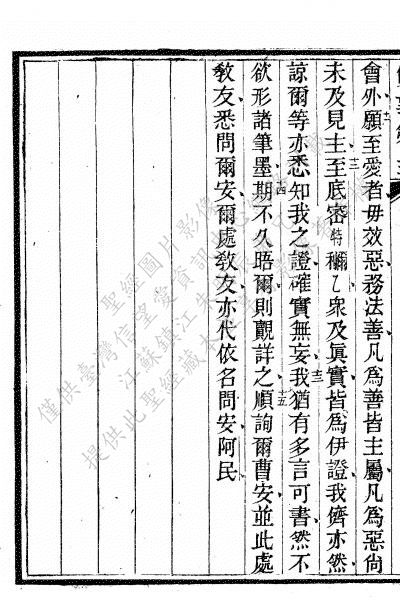 會外十一願至愛者毋效惡務法善凡為善皆主屬凡為惡尙
未及見主十二至底審特乙衆及眞實皆為伊證我儕亦然
諒爾等亦悉知我之證確實無妄十三我猶有多言可書然不
欲形諸筆墨十四期不久晤爾則觀詳之十五順詢爾曹安並此處
敎友悉問爾安爾處敎友亦代依名問安阿民
聖經圖片影像
僅供臺灣信望愛資訊
江蘇鎮江朱
提供此聖經藏本